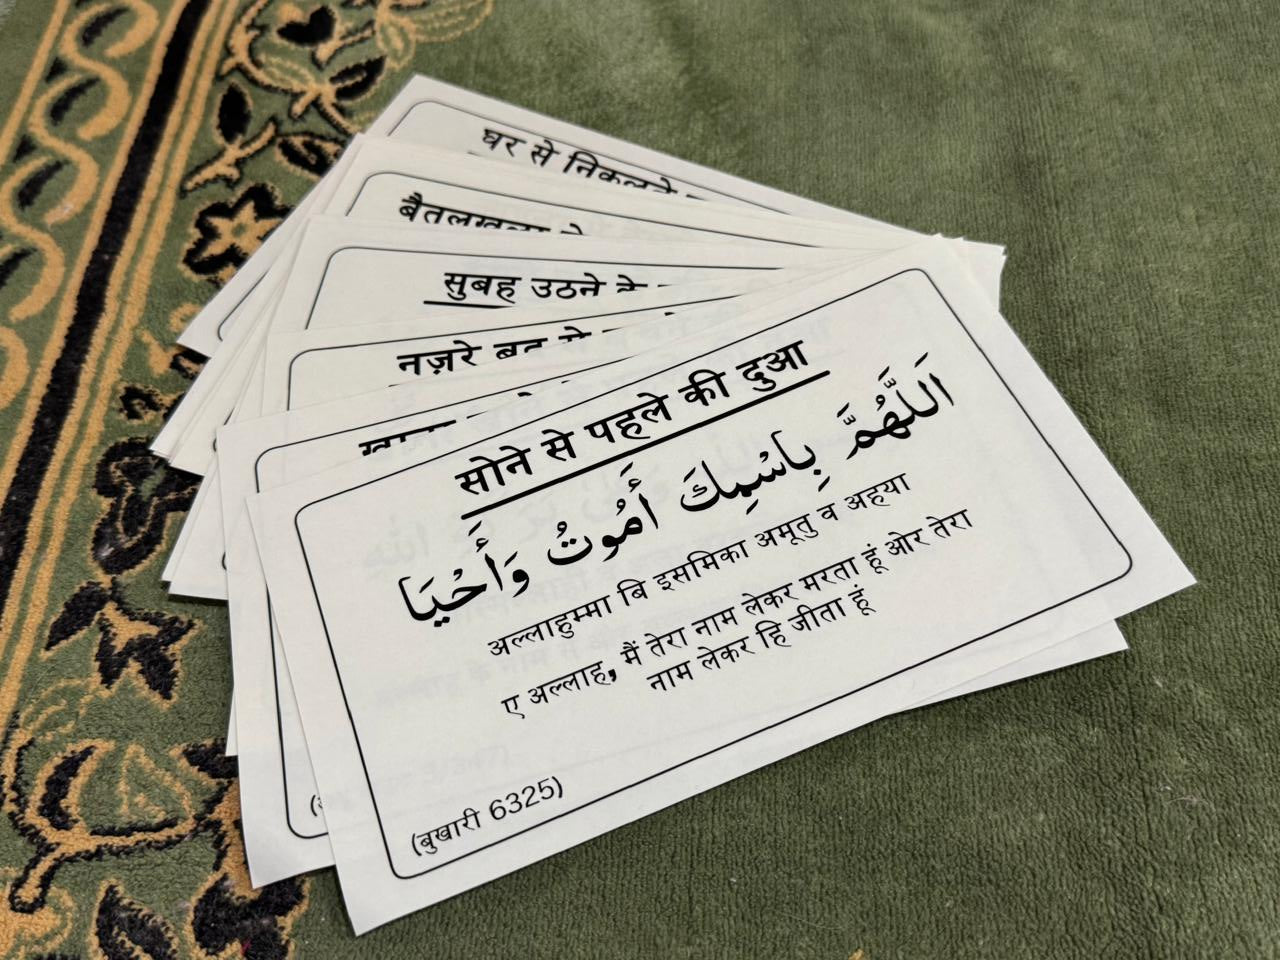 घर से निकलने
बैतलखला
सुबह उठने के
नज़रे बद से
खाना
सोने से पहले की दुआ
اَللّٰهُمَّ بِاسْمِكَ أَمُوتُ وَأَحْيَا
अल्लाहुम्मा बि इसमिका अमूतु व अहया
ए अल्लाह, मैं तेरा नाम लेकर मरता हूं ओर तेरा
नाम लेकर हि जीता हूं
(बुखारी 6325)